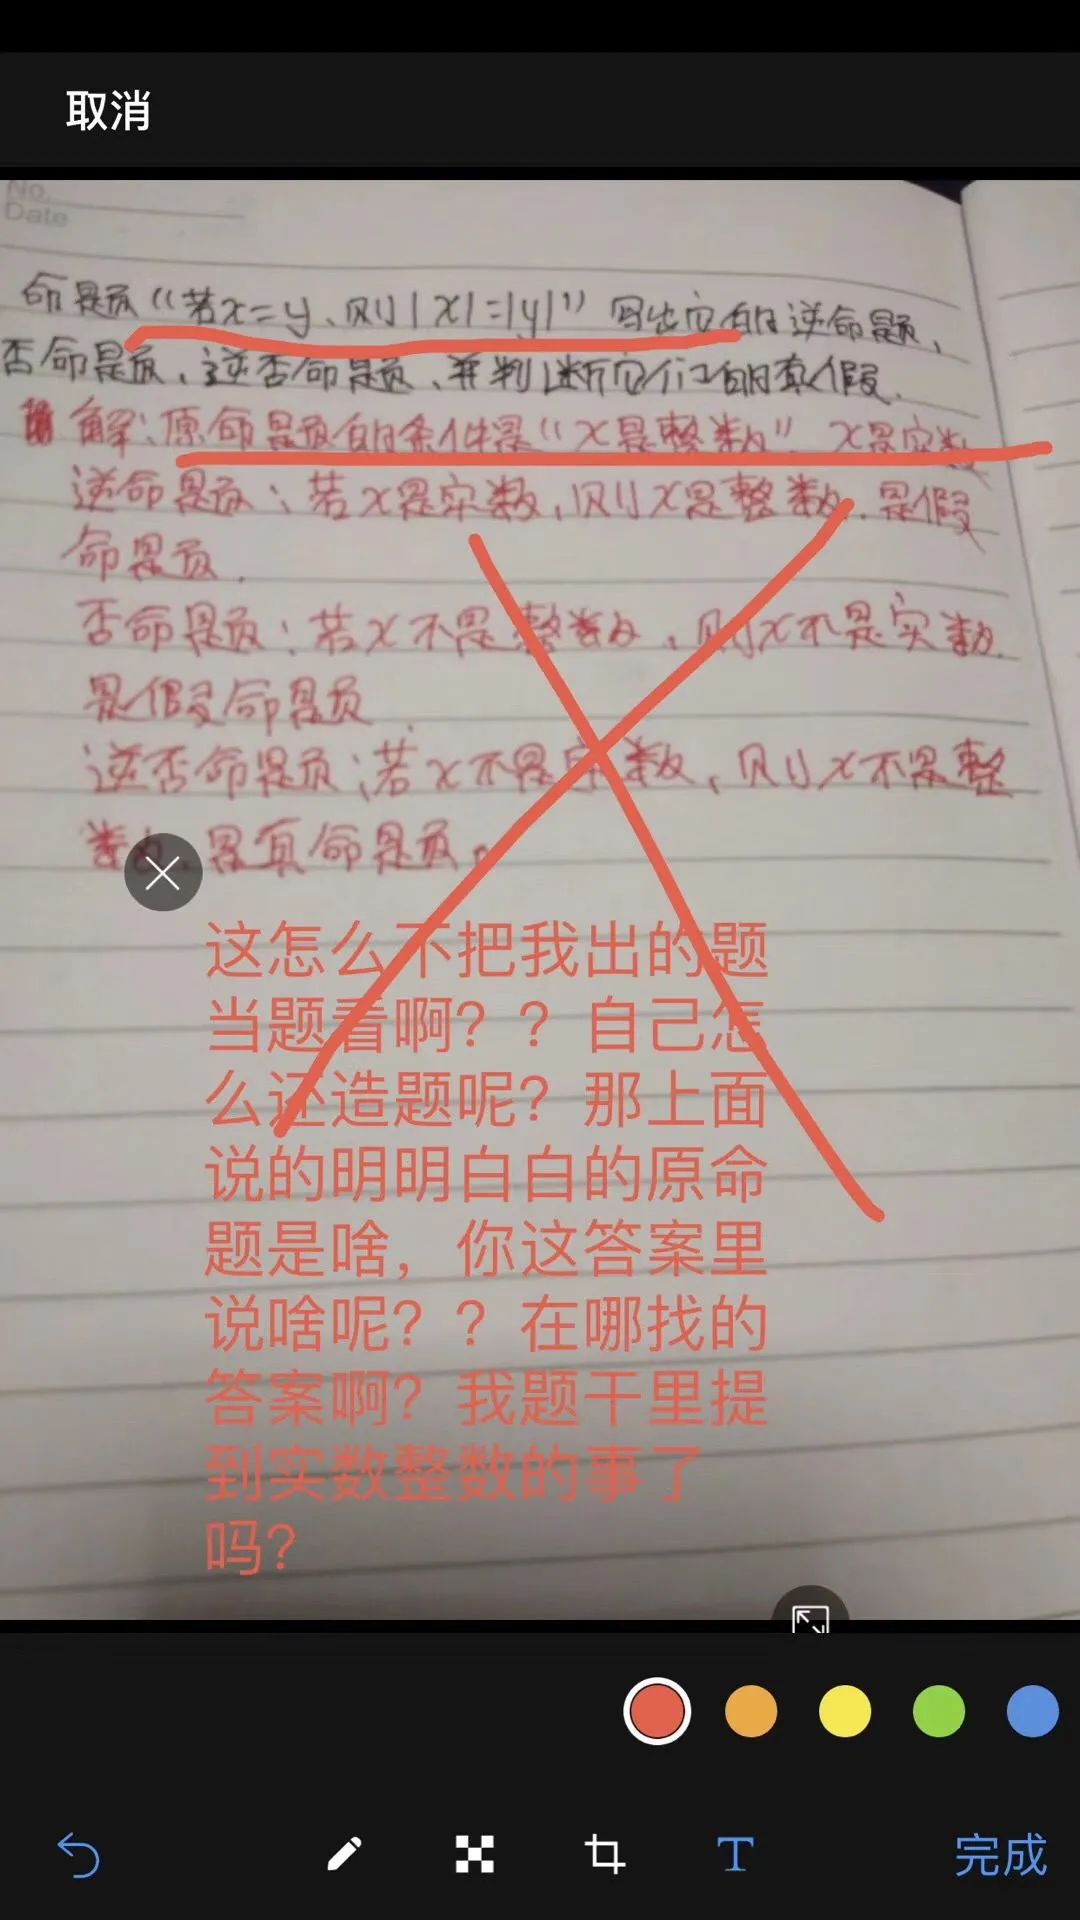 取消
No.
Date
命题"若x=y,则|x|=|y|" 写出它的逆命题,
否命题、逆否命题、并判断它们的真假.
解:原命题的条件是"x是整数",x是实数
逆命题:若x是实数,则x是整数.是假
命题.
否命题:若x不是整数,则x不是实数.
是假命题
逆否命题;若x不是实数,则x不是整
数.是真命题。
这怎么不把我出的题
当题看啊？？自己怎
么还造题呢？那上面
说的明明白白的原命
题是啥，你这答案里
说啥呢？？在哪找的
答案啊？我题干里提
到实数整数的事了
吗？
T
完成